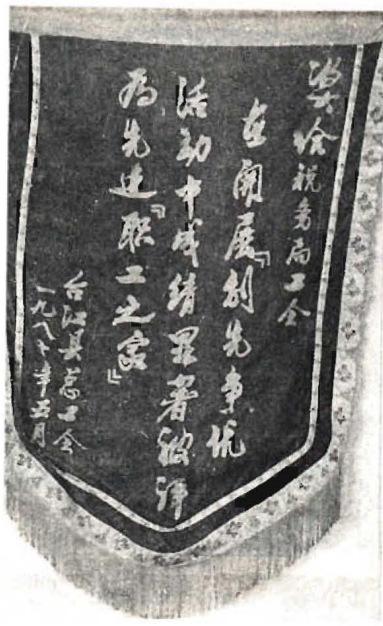 奖给税务局工会
在開展『创先争优
活动中成绩显著被评
为先进『职工之家』
台江县总工会
一九八年五月